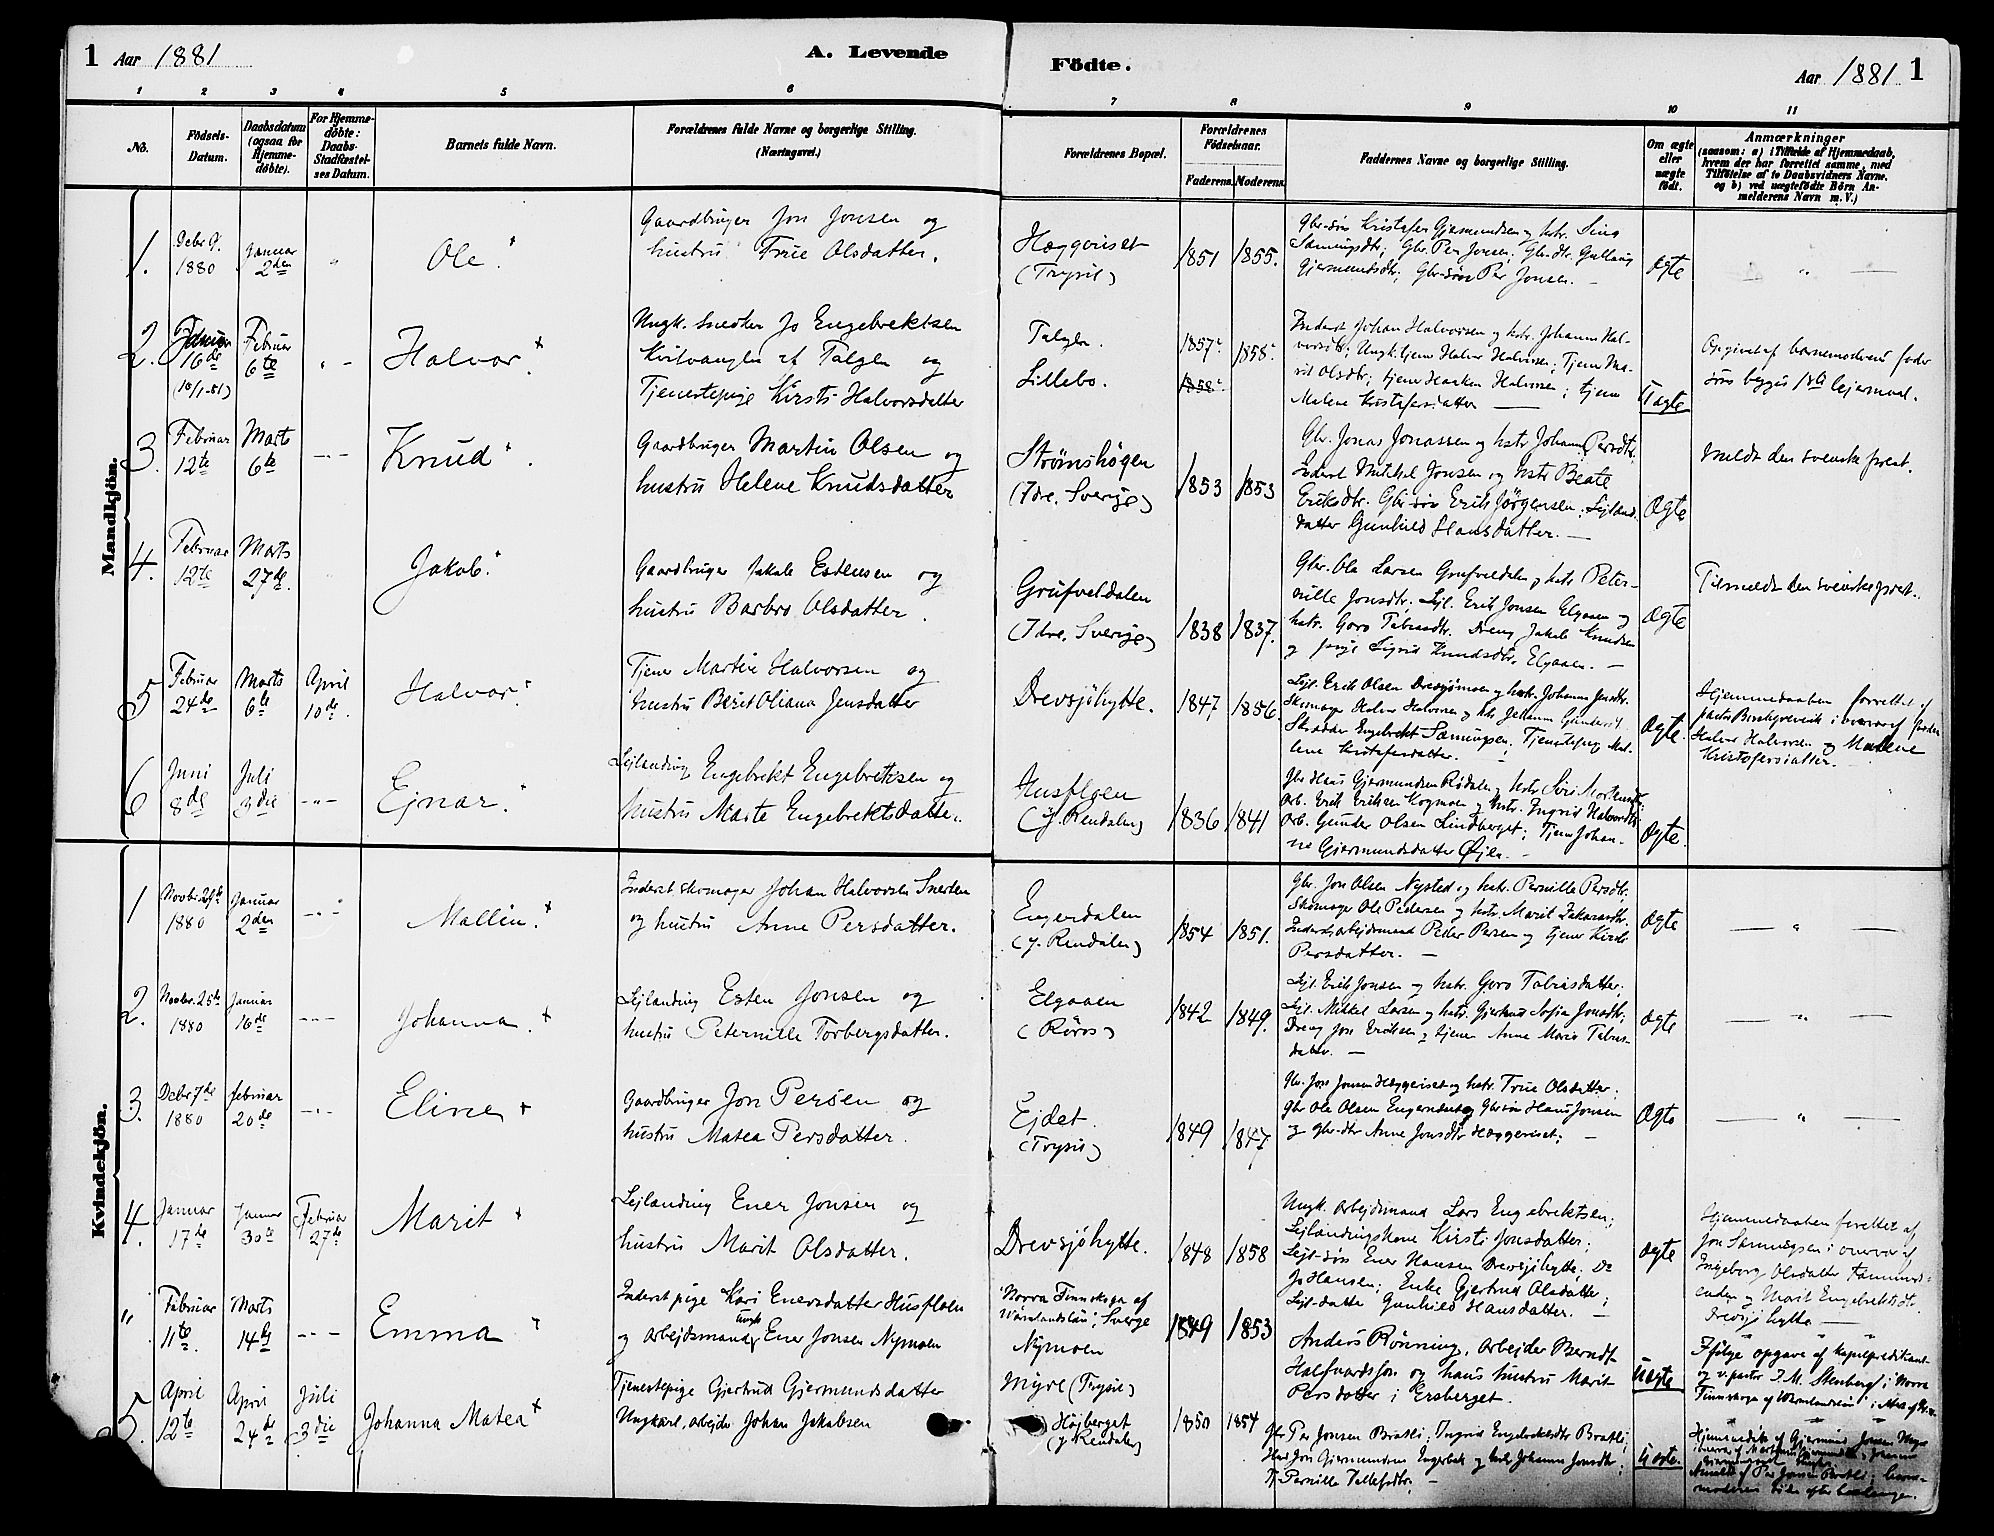 1 Aar 1881
A. Levende Födte.
Aar 1881 1
1 2 3 4 5 6 7 8 9 10 11
No.
Födsels-Datum.
Daabsdatum (ogsaa for Hjemme-döbte).
For Hjemme-döbte: Daabs-Stadfæstel-ses Datum.
Barnets fulde Navn.
Forældrenes fulde Navne og borgerlige Stilling.
(Næringsvei.)
Forældrenes Bopæl.
Forældrenes Födselsaar.
Faderens. Moderens.
Faddernes Navne og borgerlige Stilling.
Om ægte eller uægte födt.
Anmærkninger
(saasom: a) i Tilfælde af Hjemmedaab,
hvem der har forrettet samme, med
Tilföielse af to Daabsvidners Navne.
og b) ved uægtefödte Börn An-
melderens Navn m. V.)
Mandkjön.
1. Debr 9. 1880
Januar 2den
Ole
Gaardbruger Jon Jonsen og
hustru True Olsdatter.
Hæggeriset
(Trysil)
1851 1855.
Gbr-søn Kristofer Gjermundsen og hstr. Siri
Sæmingsdtr; Gbr Per Jonsen; Gbr-dtr. Gullaug
Gjermundsdtr; Gbr-søn Per Jonsen.
Ægte
2. 16de
(16/1-81)
Februar 6te
Halvor
Ungk. Snedker Jo Engebrektsen
Kvilvangen af Tolgen og
Tjenestepige Kirsti Halvorsdatter
Tolgen.
Lillebo.
1857 1858
1858
Inderst Johan Halvorsen og hstr. Johanne Hal-
vorsdtr; Ungk. tjener Halvor Halvorsen; Tjener Ma-
rit Olsdtr; tjener Haaken Halvorsen; tjener
Malene Kristofersdatter
Uægte
Opgivet af barnemoderens fader
som begges 1ste lejermaal.
3. Februar 12te
Marts 6te
Knud
Gaardbruger Martin Olsen og
hustru Helene Knudsdatter
Strømshøgen
(Idre, Sverige)
1853 1853
Gbr. Jonas Jonassen og hstr Johanne Persdtr.
Inderst Mikkel Jonsen og hstr Beate
Eriksdtr. Gbr-søn Erik Jörgensen; Lejland.
datter Gunhild Hansdatter.
Ægte
Meldt den svenske prest.
4. Februar 12te
Marts 27de
Jakob
Gaardbruger Jakob Estensen og
hustru Barbro Olsdatter.
Grufveldalen
(Idre, Sverige)
1838 1837.
Gbr. Ola Larsen Grufveldalen og hstr Peter-
nille Jonsdtr; Lejl. Erik Jonsen Elgaaen og
hstr. Goro Tobiasdtr. Dreng Jakob Knudsen
og pige Sigrid Knudsdtr, Elgaaen.
Ægte
Tilmeldt den svenske prest.
5 Februar 24de
Marts 6te
April 10de
Halvor
Tjener Martin Halvorsen og
hustru Berit Oliana Jensdatter
Drevsjöhytte.
1847 1856.
Lejl. Erik Olsen Drevsjömoen og hstr. Johanna Jensdtr.
Skomager Halvor Halvorsen og hstr Johanne
Skrædder Engebrekt Sæmingsen; Tjenestepige Ma-
lene Kristofersdatter.
Ægte.
Hjemmedaaben forrettet af
fader
Halvor Halvorsen og Malene
Kristofersdatter.
6 Juni 8de
Juli 3die
Ejnar.
Lejlænding Engebrekt Engebretsen og
hustru Marte Engebrektsdatter.
Husfloen
(Y. Rendalen)
1836 1841
Gbr Hans Gjermundsen Rødalen og hstr Siri
Arb. Erik Eriksen Kogmoen og hstr. Ingrid Halvorsdtr
Arb. Gunder Olsen Lindberget; Tjener Johan-
ne Gjermundsdatter Öjen.
Ægte.
Kvindekjön.
1 1880
Januar 2den
Mallin.
Inderst skomager Johan Halvorsen Snerten
og hustru Anne Persdatter.
Engerdalen
(Y. Rendalen)
1854 1851.
Gbr. Jon Olsen Nysted og hstr. Pernille Persdtr;
Skomager Ole Pedersen og hstr. Marit Zakariasdtr.
Inderst arbejdsmand Peder Persen og tjener Kirsti
Persdatter.
Ægte
2. Novbr. 25te 1880
Januar 16de
Johanna.
Lejlænding Esten Jonsen og
hustru Peternille Torbergsdatter.
Elgaaen
(Röros)
1842 1849.
Lejl. Erik Jonsen og hstr. Goro Tobiasdatter.
Lejl. Mikkel Larsen og hstr. Gjertrud Sofia Jonsdtr;
Dreng Jon Eriksen og tjener Anne Marie Tobias-
datter.
Ægte
3. Debr 7de 1880
Februar 20de
Eline
Gaardbruger Jon Persen og
hustru Matea Persdatter.
Ejdet.
(Trysil)
1849 1847
Gbr. Jon Jonsen Hæggeriset og hstr. True Olsdatter;
gbr Ole Olsen Engernæset; Gbrsøn Hans Jonsen
og gbr-dtr Anne Jonsdtr Hæggeriset;
Ægte
4. Januar 17de
Januar 30te
Februar 27de
Marit
Lejlænding Ener Jonsen og
hustru Marit Olsdatter.
Drevsjöhytte.
1848 1858
Ungk. Arbejdsmand Lars Engebrektsen;
Lejlændingskone Kirsti Jonsdatter;
Lejl-søn Ener Hansen Drevsjöhytte; Do
Jo Hansen; Enke Gjertrud Olsdatter;
Lejl-datter Gunhild Hansdatter.
Ægte
Hjemmedaaben forrettet af
Jon Sæmingsen i overvær af
Ingeborg Olsdatter Fæmunds-
enden og Marit Engebrektsdtr.
Drevsjöhytte
" Februar 11te
Marts 14de
Emma
Inderst pige Kari Enersdatter Husfloen
og arbejdsmand Ungk Ener Jonsen Nymoen
Norra Finnskoga af
Wärmlands län; Sverige
Nymoen
1849 1853
Anders Rönning, Arbejder Berndt
Halfvardsson og hans hustru Marit
Persdatter i Ersberget.
Uægte
Ifölge opgave af
og v. pastor J. M. Stenberg i Norra
Finnskoga af Wermlandslän
5. April 12te
April 24de
Juli 3die
Johanna Matea
Tjenestepige Gjertrud Gjermundsdatter
Ungkarl, arbejder Johan Jakobsen
Myre (Trysil)
Höjberget
(Y. Rendalen)
1850 1854
Gbr Per Jonsen Bratli; Ingrid Engebrektsdtr Bratli;
Jon Gjermundsen Engerbak og hstr Johanne Jonsdtr;
Pernille Tollefsdtr.
Uægte.
Hjemmedøbt af Gjermund Jonsen Myre
Anmeldt af Per Jonsen Bratli; barne-
moderen